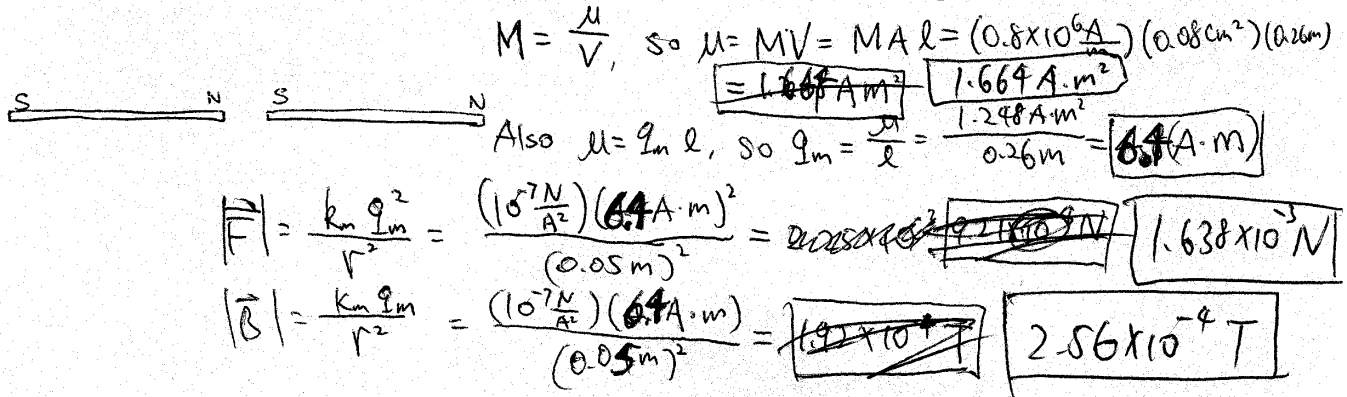 M = μ/V, so μ = MV = MAl = (0.8×10⁶ A/m)(0.08cm²)(0.26m)
= 1.664 A·m²
S N S N
Also μ = qₘ l, so qₘ = μ/l = 1.248A·m²/0.26m = 6.4(A·m)
|F⃗| = kₘ qₘ²/r² = (10⁻⁷ N/A²)(6.4A·m)²/(0.05m)² = 1.638×10⁻³N
|B⃗| = kₘ qₘ/r² = (10⁻⁷ N/A²)(6.4A·m)/(0.05m)² = 1.92×10⁻⁴ T 2.56×10⁻⁴ T